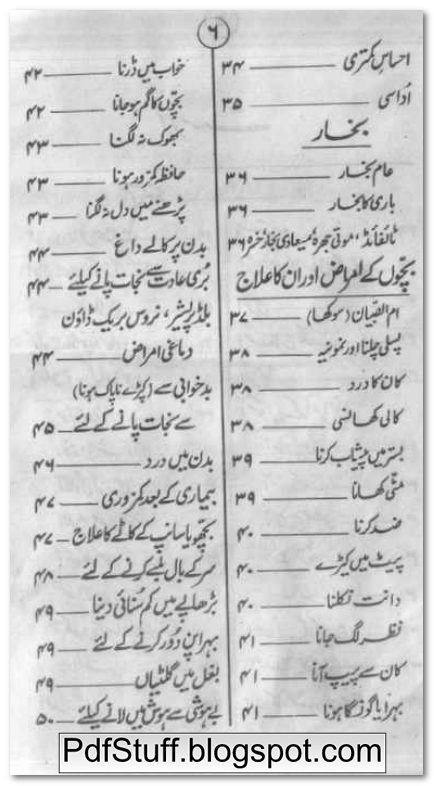 ۶
احساس کمتری ۳۴
اُداسی ۳۵
بخار
عام بخار ۳۶
باری کا بخار ۳۶
ٹائفائڈ، موتی جھرہ، میعادی بخار، خسرہ ۳۶
بچّوں کے امراض اور ان کا علاج
ام الصّبیان (سوکھا) ۳۷
پسلی چلنا اور نمونیہ ۳۸
کان کا درد ۳۸
کالی کھانسی ۳۸
بستر میں پیشاب کرنا ۳۹
مٹّی کھانا ۳۹
ضد کرنا ۴۰
پیٹ میں کیڑے ۴۰
دانت نکلنا ۴۰
نظر لگ جانا ۴۱
کان سے پیپ آنا ۴۱
بہرا یا گونگا ہونا ۴۱
خواب میں ڈرنا ۴۲
بچّوں کا گم ہو جانا ۴۲
بھوک نہ لگنا ۴۳
حافظہ کمزور ہونا ۴۳
پڑھنے میں دل نہ لگنا ۴۳
بدن پر کالے داغ ۴۴
بُری عادت سے نجات پانے کیلئے ۴۴
بلڈ پریشر، نروس بریک ڈاؤن
دماغی امراض ۴۴
بدخوابی سے (کپڑے ناپاک ہونا)
سے نجات پانے کے لئے ۴۵
بدن میں درد ۴۶
بیماری کے بعد کمزوری ۴۷
بچھو یا سانپ کے کاٹے کا علاج ۴۷
سر کے بال لمبے کرنے کے لئے ۴۸
بڑھاپے میں کم سُنائی دینا ۴۹
بہرا پن دُور کرنے کے لئے ۴۹
بغل میں گلٹیاں ۴۹
بے ہوشی سے ہوش میں لانے کیلئے ۵۰
PdfStuff.blogspot.com